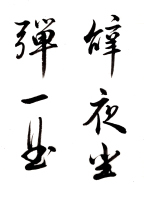 夜坐
彈一曲